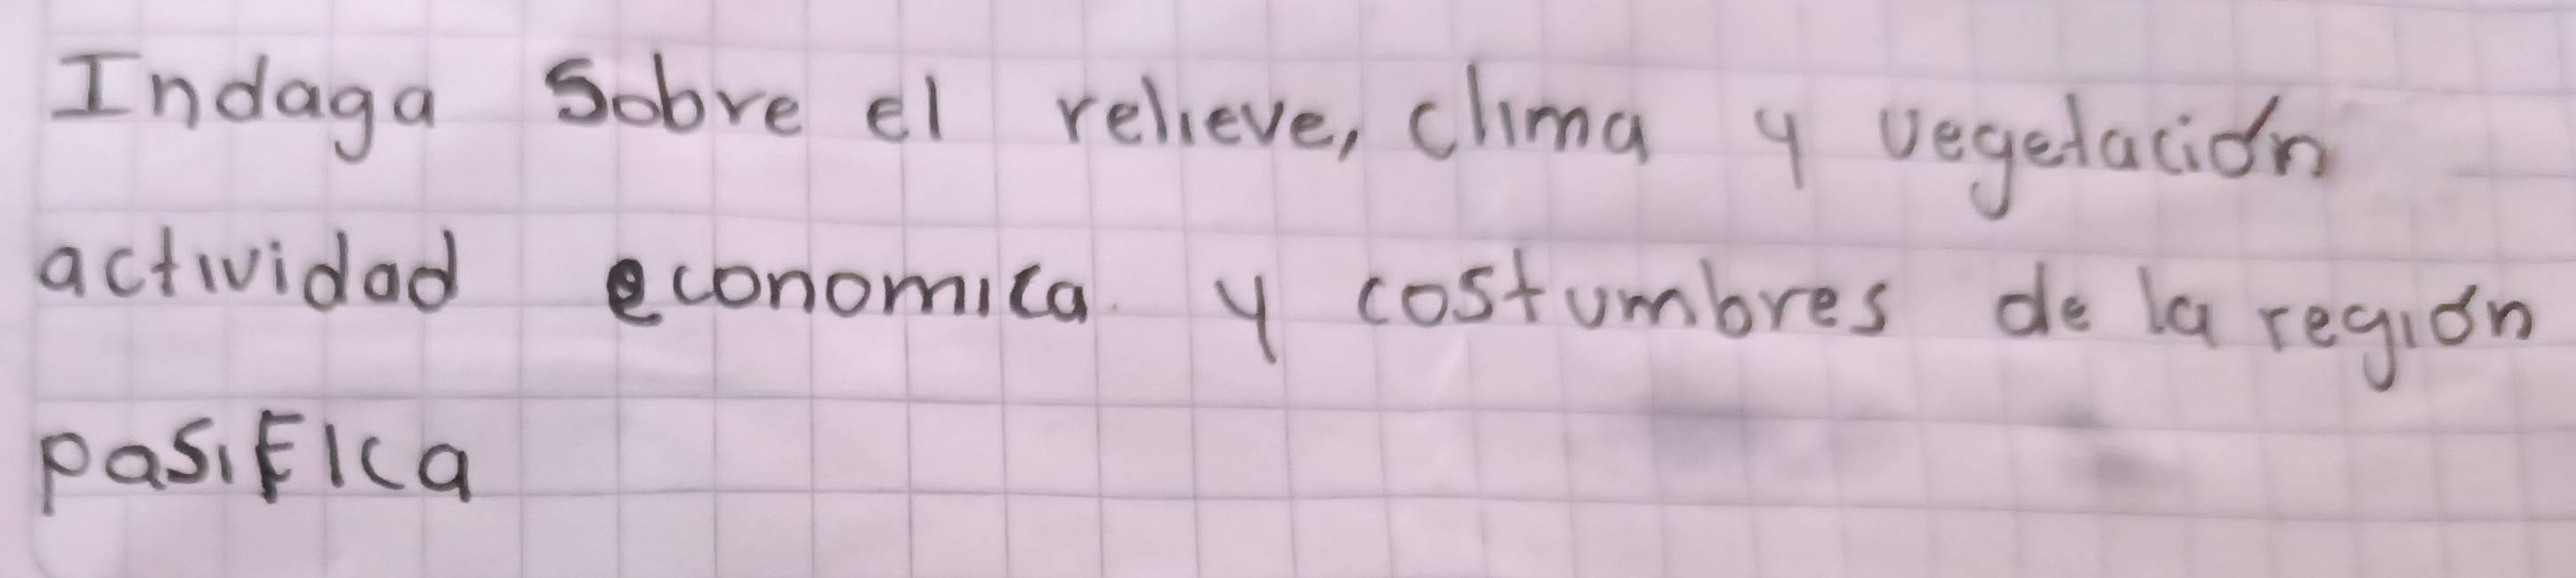 Indaga sobre el relieve, clima y vegetación
actividad economica y costumbres de la región
pasifica